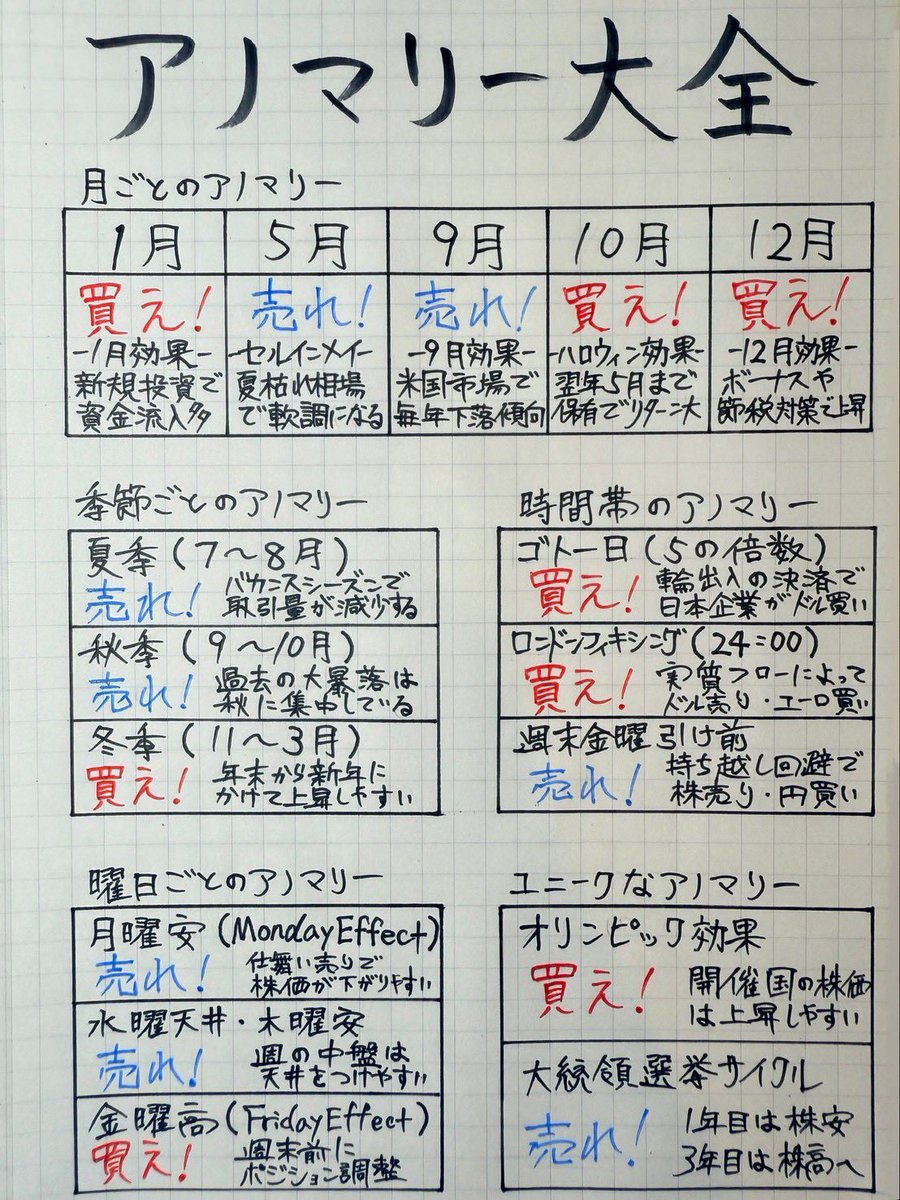 アノマリー大全
月ごとのアノマリー
1月
買え!
-1月効果-
新規投資で
資金流入多
5月
売れ!
-セルインメイ-
夏枯れ相場
で軟調になる
9月
売れ!
-9月効果-
米国市場で
毎年下落傾向
10月
買え!
-ハロウィン効果-
翌年5月まで
保有でリターン大
12月
買え!
-12月効果-
ボーナスや
節税対策で上昇
季節ごとのアノマリー
夏季(7~8月)
売れ!
バカンスシーズンで
取引量が減少する
秋季(9~10月)
売れ!
過去の大暴落は
秋に集中している
冬季(11~3月)
買え!
年末から新年に
かけて上昇しやすい
時間帯のアノマリー
ゴトー日(5の倍数)
買え!
輸出入の決済で
日本企業がドル買い
ロンドンフィキシング(24:00)
買え!
実質フローによって
ドル売り・ユーロ買い
週末金曜引け前
売れ!
持ち越し回避で
株売り・円買い
曜日ごとのアノマリー
月曜安(MondayEffect)
売れ!
仕舞い売りで
株価が下がりやすい
水曜天井・木曜安
売れ!
週の中盤は
天井をつけやすい
金曜高(FridayEffect)
買え!
週末前に
ポジション調整
ユニークなアノマリー
オリンピック効果
買え!
開催国の株価
は上昇しやすい
大統領選挙サイクル
売れ!
1年目は株安
3年目は株高へ